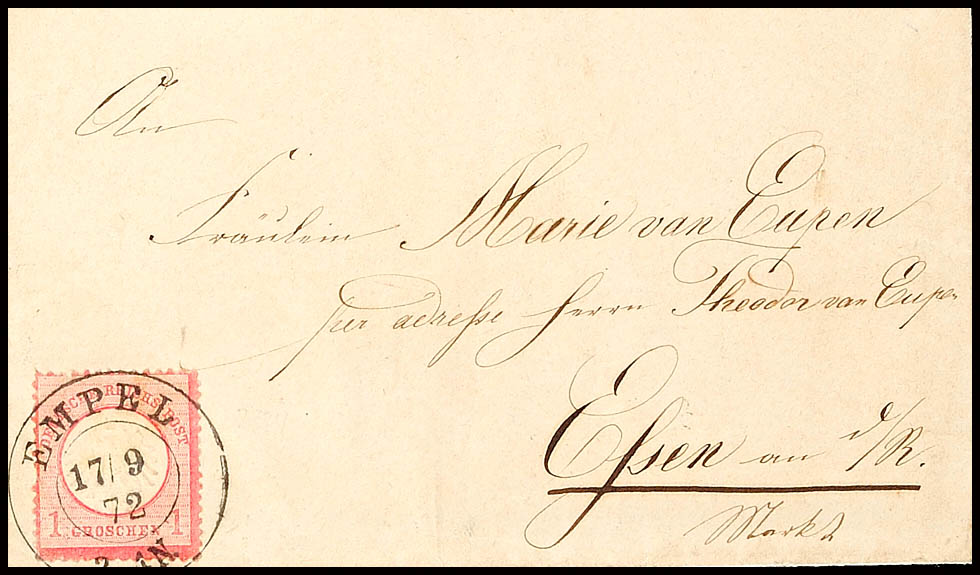 An
Fräulein Marie van Eupen
per adresse Herrn Theodor van Eupen
Essen an d/R.
Markt
EMPEL
17/9
72
REICHS-POST
1 GROSCHEN 1